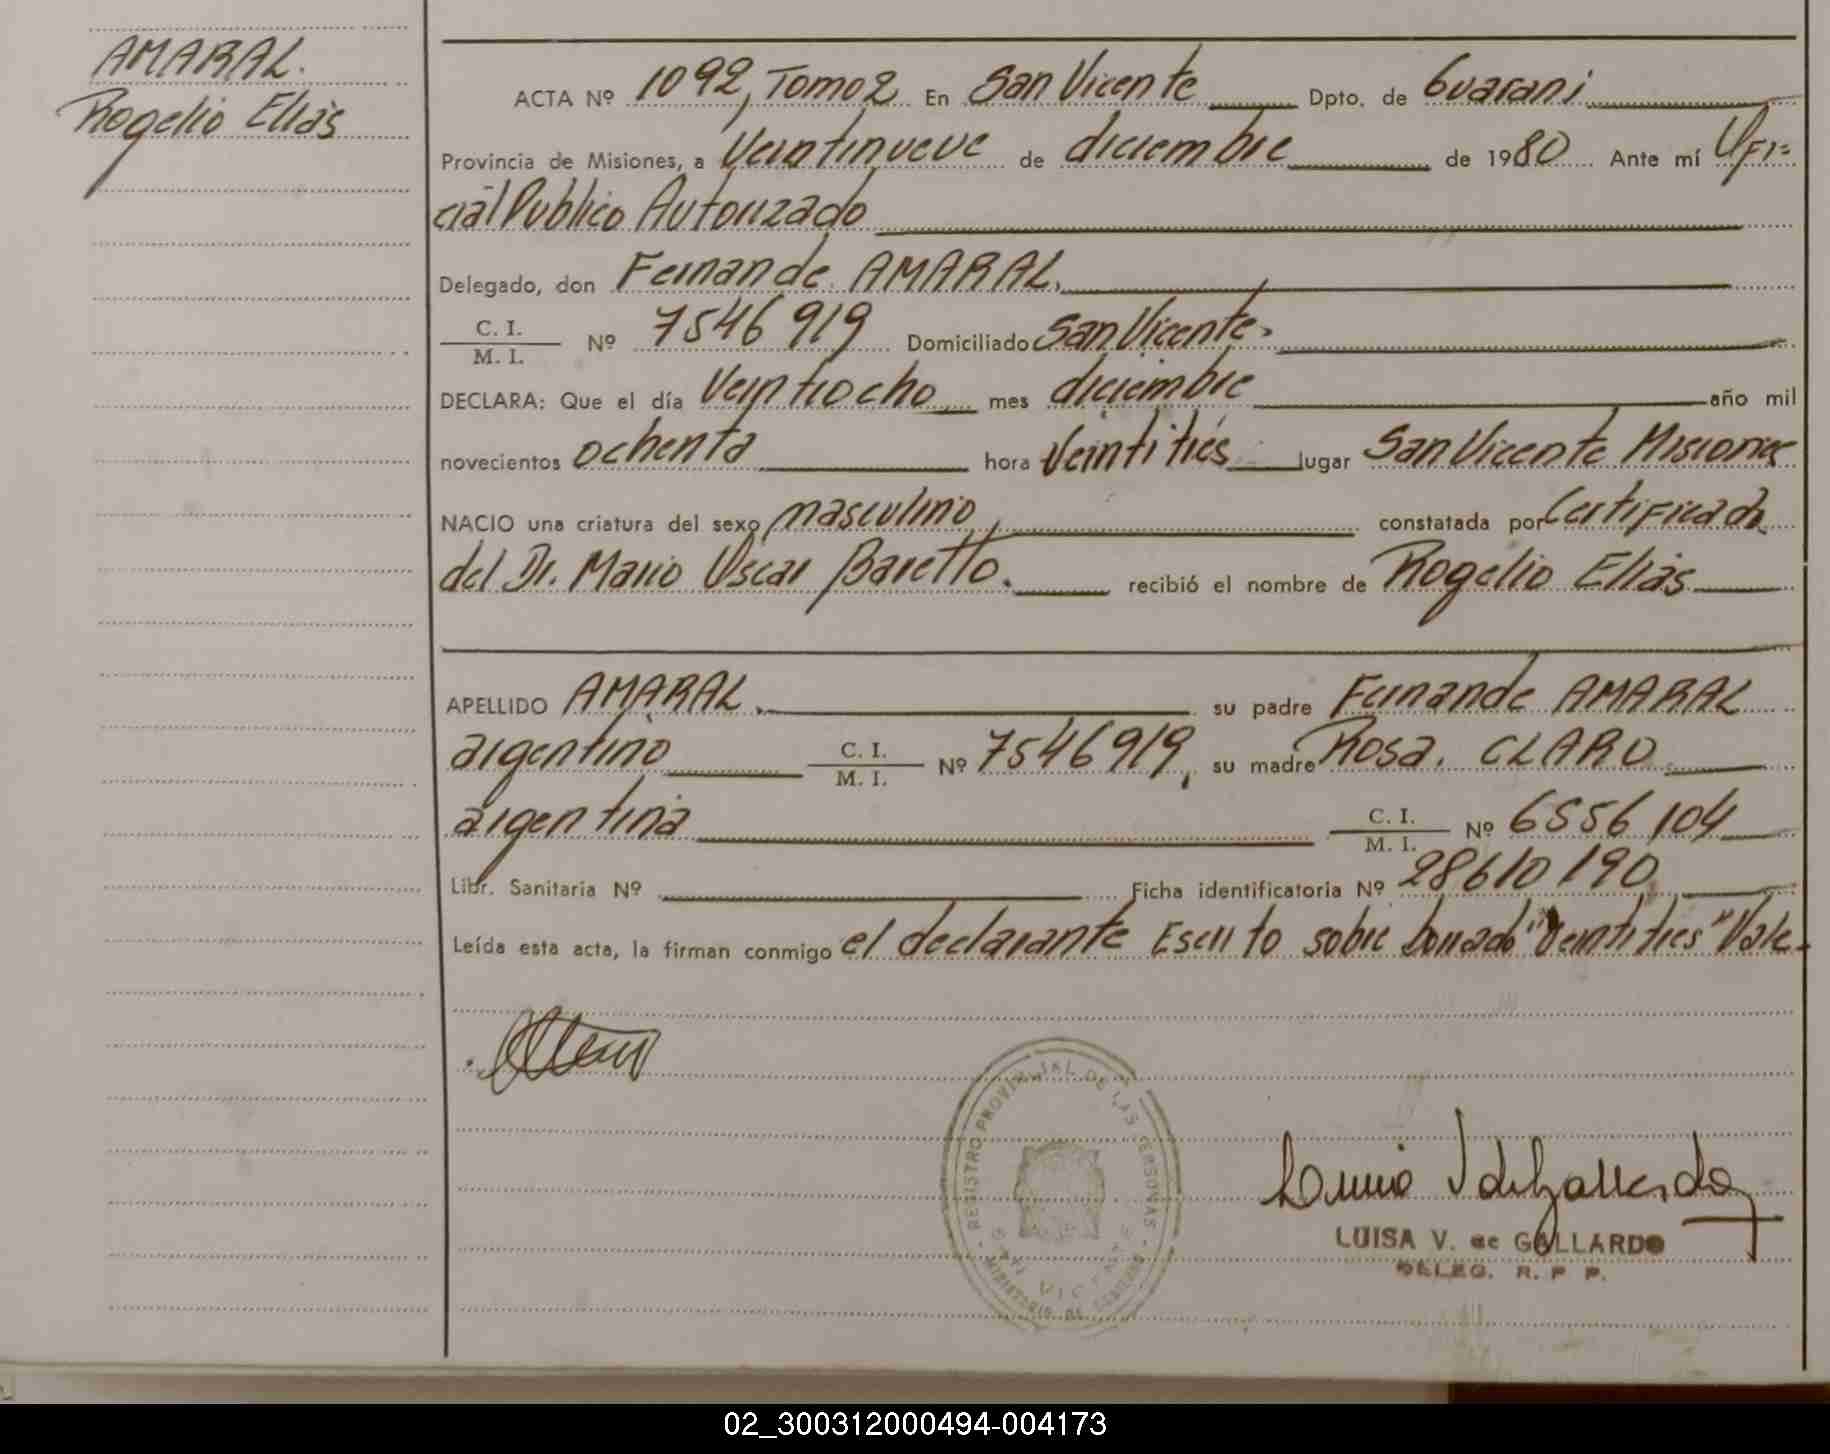 AMARAL.
Rogelio Elías
ACTA Nº 1092, Tomo 2 En San Vicente Dpto. de Guaraní
Provincia de Misiones, a Veintinueve de diciembre de 1980 Ante mí Ofi=
cial Publico Autorizado
Delegado, don Fernande AMARAL,
C. I. / M. I. Nº 7546919 Domiciliado San Vicente.
DECLARA: Que el día Veintiocho mes diciembre año mil
novecientos ochenta hora Veintitrés lugar San Vicente Misiones
NACIO una criatura del sexo masculino, constatada por Certificado
del Dr. Mario Oscar Baretto. recibió el nombre de Rogelio Elías
APELLIDO AMARAL. su padre Fernande AMARAL
argentino C. I. / M. I. Nº 7546919, su madre Rosa. CLARO
argentina C. I. / M. I. Nº 6556104
Libr. Sanitaria Nº Ficha identificatoria Nº 28610190
Leída esta acta, la firman conmigo el declarante Escrito sobre borrado "Veintitres" Vale-
REGISTRO PROVINCIAL DE LAS PERSONAS
SAN VICENTE
MINISTERIO DE GOBIERNO
LUISA V. de GALLARDO
DELEG. R. P. P.
02_300312000494-004173